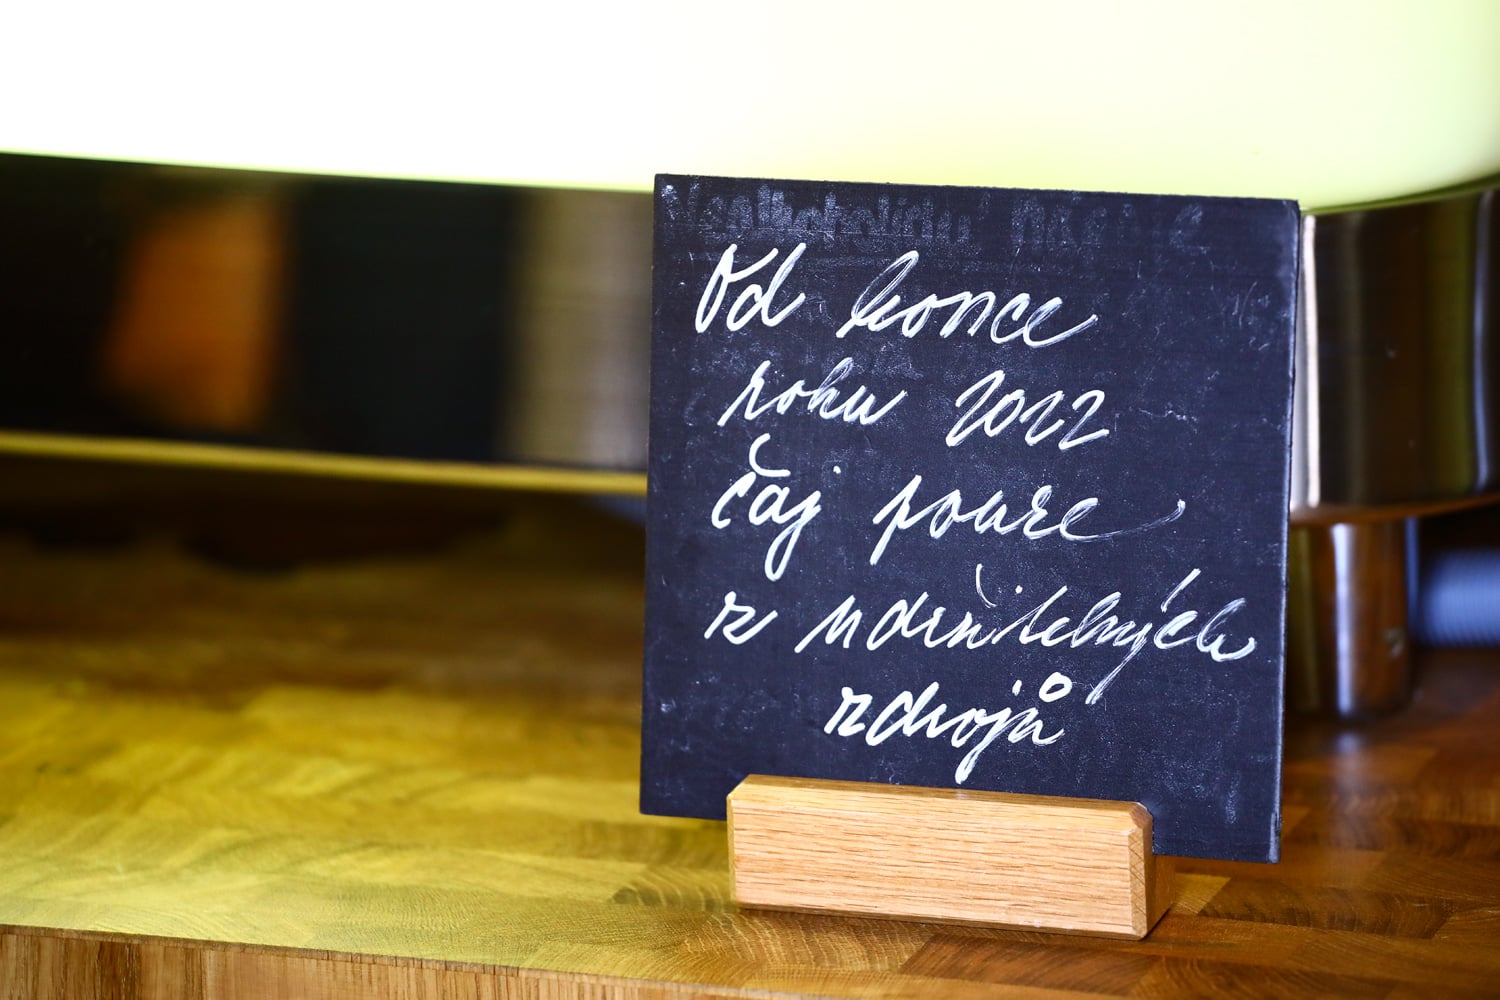 Od konce
roku 2022
čaj pouze
z udržitelných
zdrojů